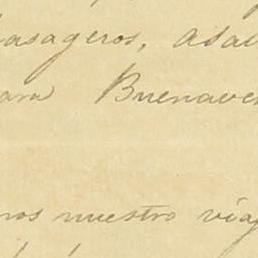 pasageros,
para Buenave
nos nuestro viag